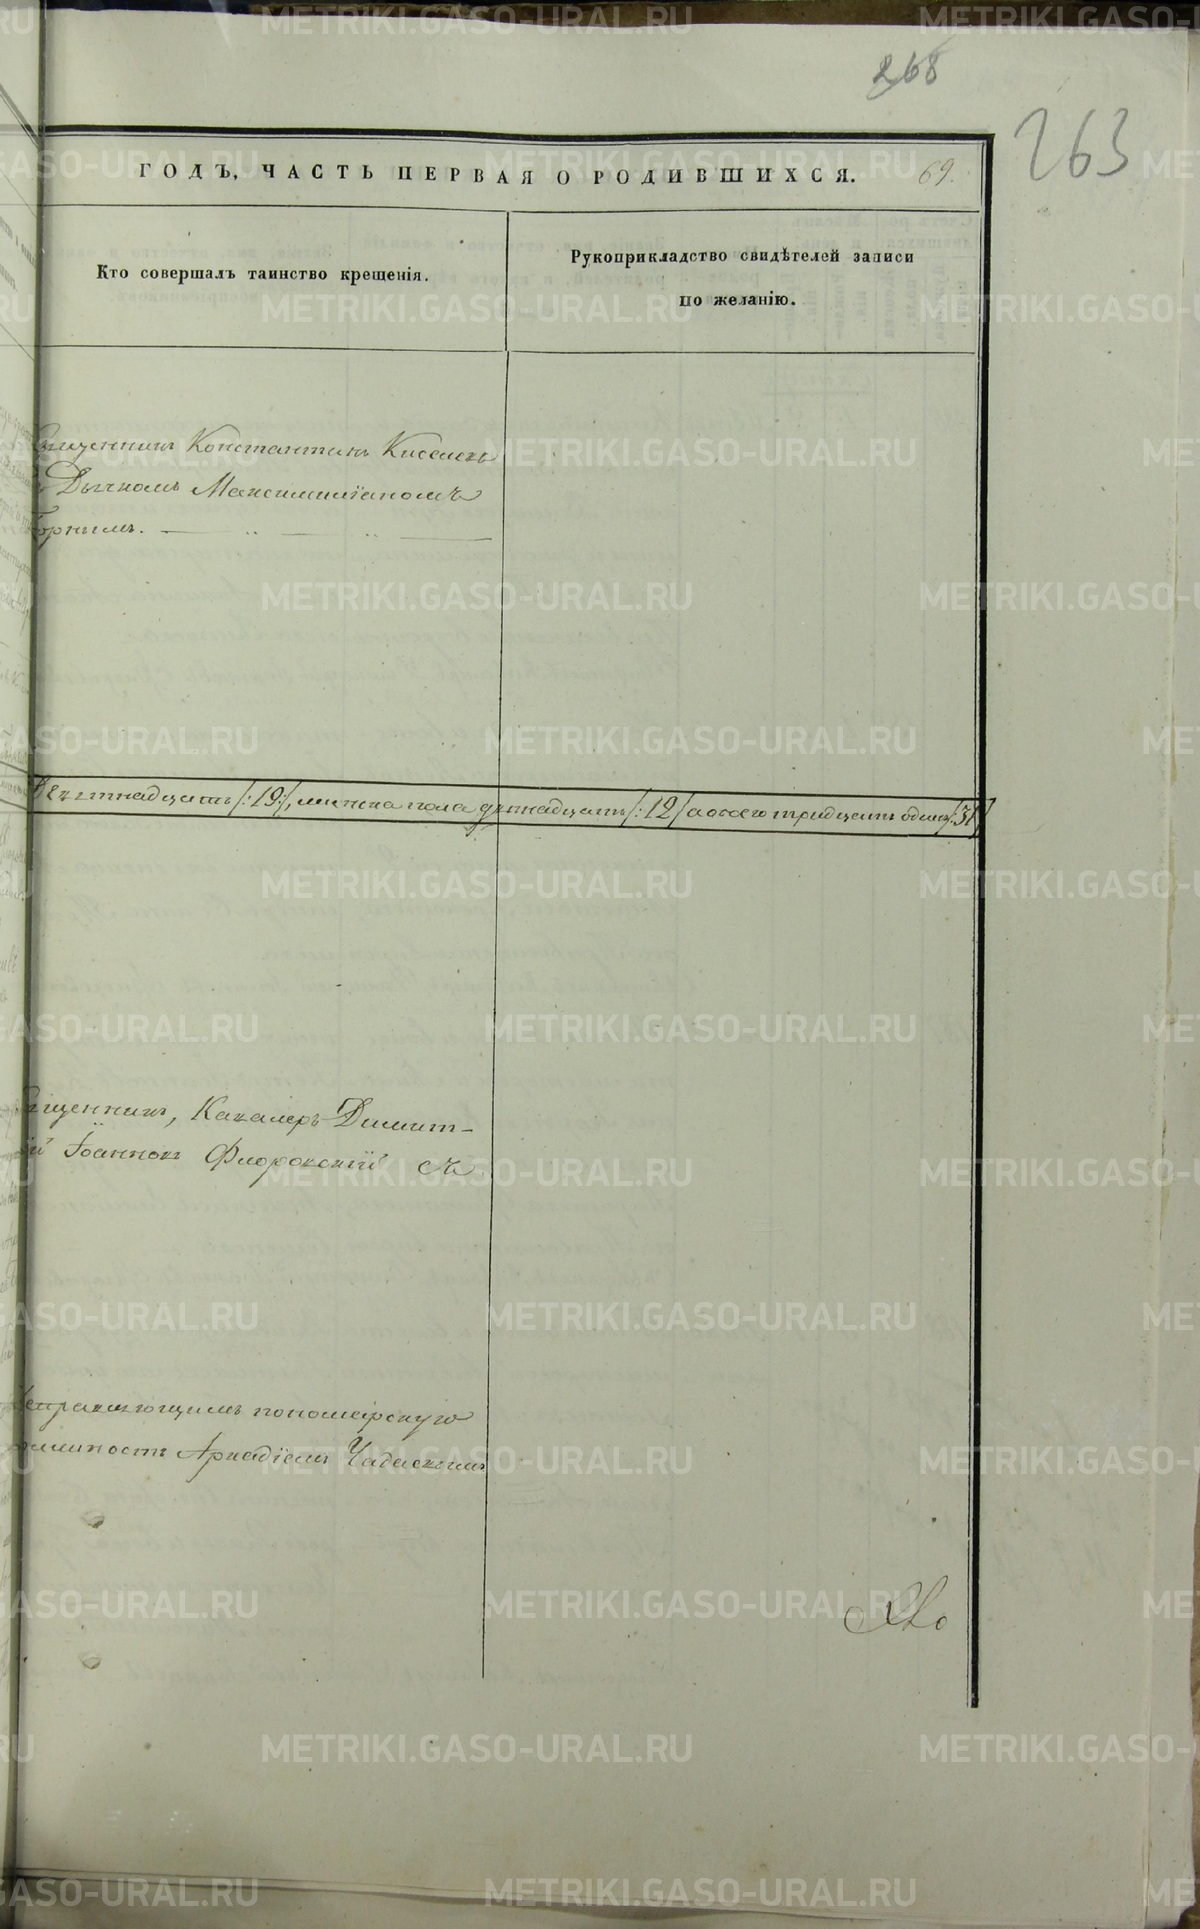 268
263
ГОДЪ, ЧАСТЬ ПЕРВАЯ О РОДИВШИХСЯ. 69.
Кто совершалъ таинство крещенія.
Рукоприкладство свидѣтелей записи
по желанію.
Священникъ Константинъ Киселевъ
Дьячкомъ Максимиліаномъ
Горнимъ.
девятнадцать /:19:/, женска пола двенадцать /:12/ а всего тридцать одинъ /:31/
Священникъ, Кавалеръ Димит-
рій Іоанновъ Флоровскій съ
исправляющимъ пономарскую
должность Аркадіемъ
METRIKI.GASO-URAL.RU